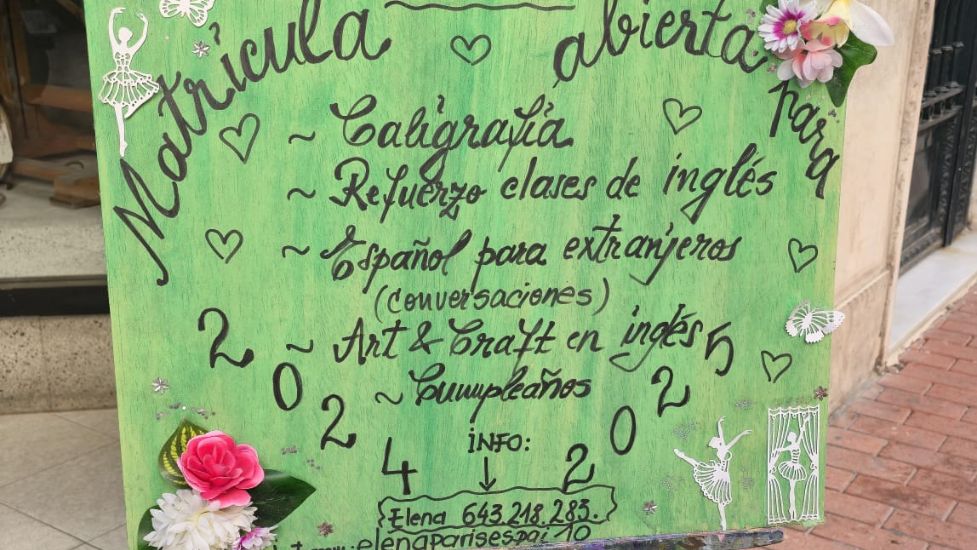 Matrícula abierta para
~ Caligrafía
~ Refuerzo clases de inglés
~ Español para extranjeros
(conversaciones)
~ Art & Craft en inglés
~ Cumpleaños
2024 2025
INFO:
Elena 643.218.283.